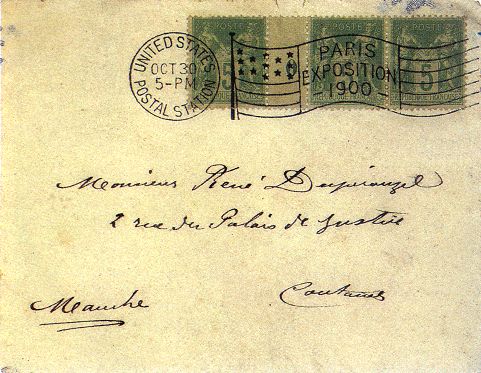 UNITED STATES
OCT 30
5-PM
POSTAL STATION
PARIS
EXPOSITION
1900
5
5
Monsieur René
2 rue du Palais de Justice
Coutances
Manche